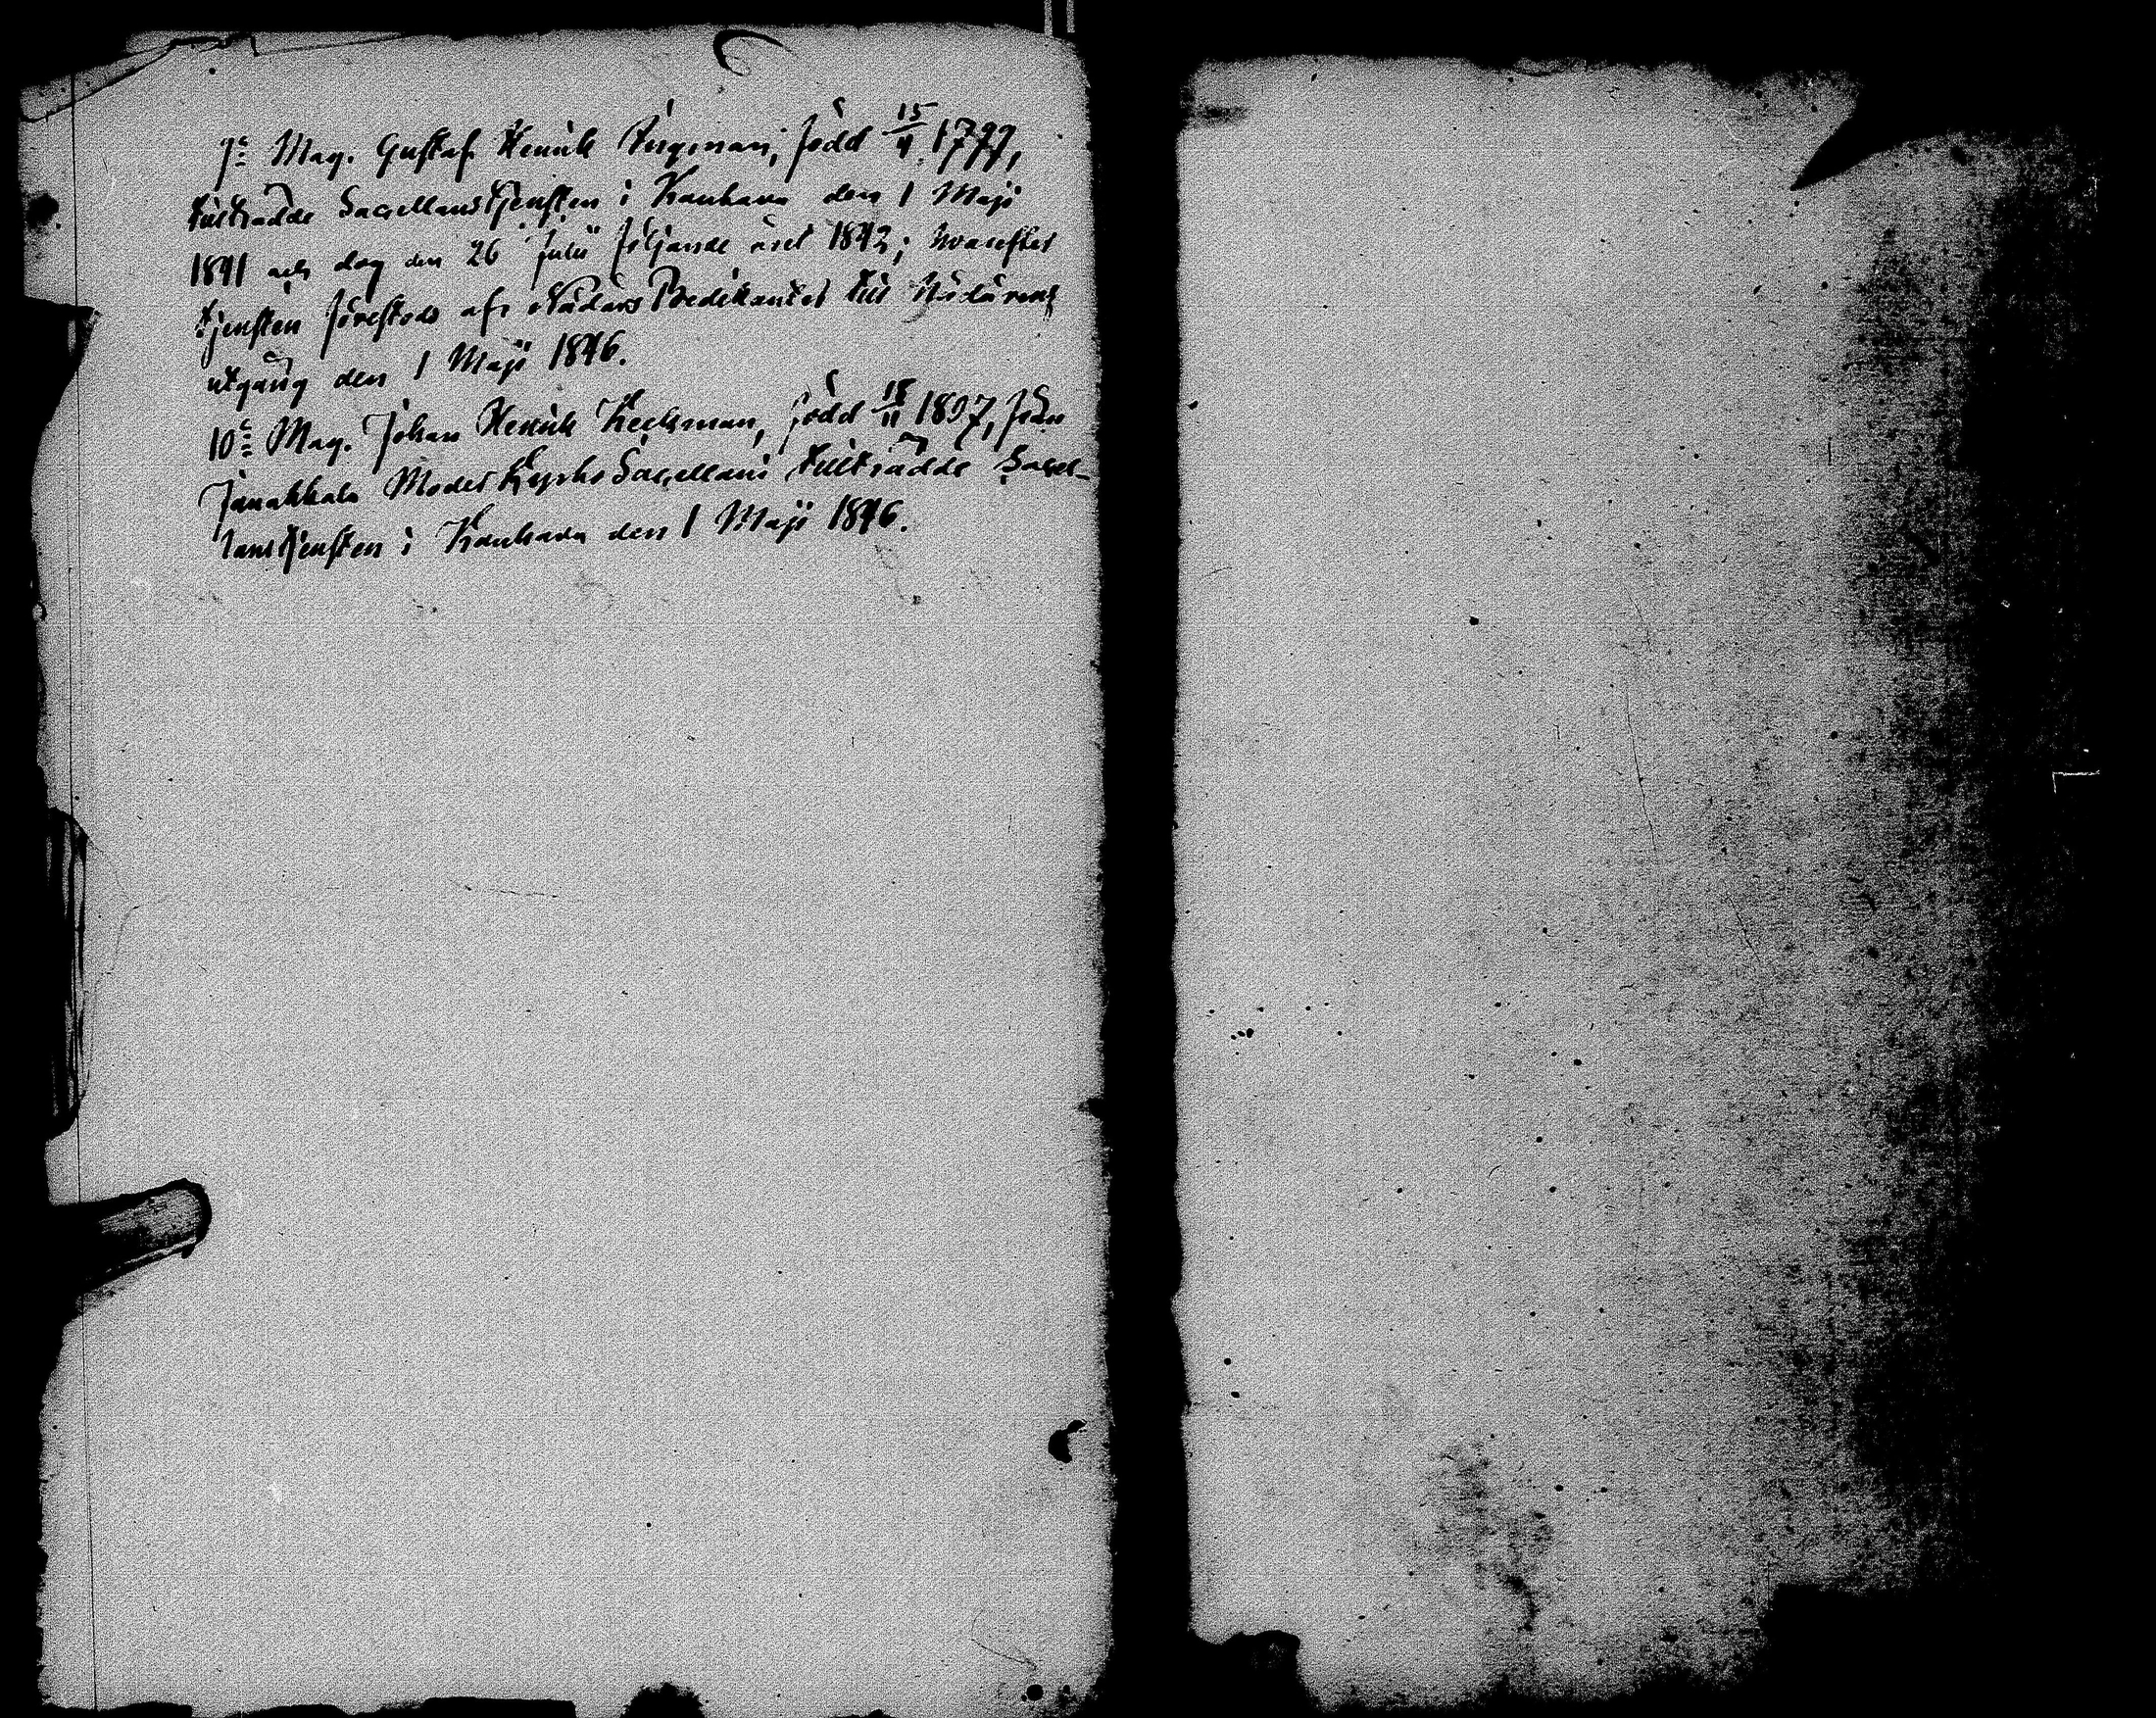 9:e Mag. Gustaf Henrik Bergman, född 15/4 1799,
tillträdde Sacellanstjensten i Kauhava den 1 Maji
1841 och dog den 26 Julii följande året 1842; hvarefter
tjensten förestods af NådårsPredikanter till Nådårens
utgång den 1 Maji 1846.
10:e Mag. Johan Henrik Keckman, född 18/11 1807, från
Janakkala ModerKyrko Sacellani tillträdde Sacel-
lanstjensten i Kauhava den 1 Maji 1846.